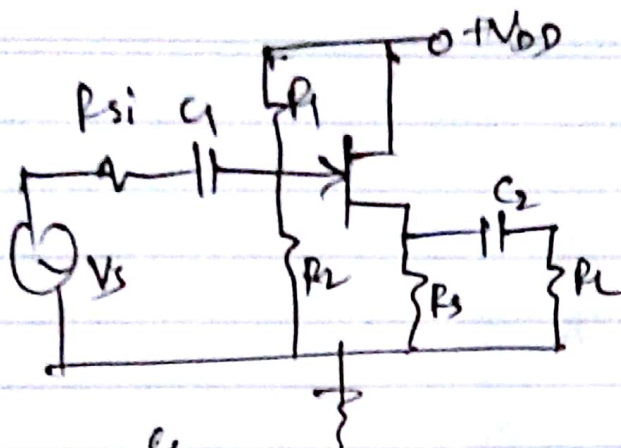 +VDD
Rsi C1 R1
C2
Vs R2 Rs RL